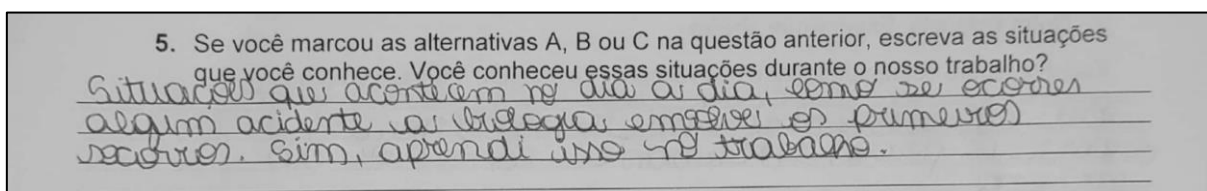 5. Se você marcou as alternativas A, B ou C na questão anterior, escreva as situações
que você conhece. Você conheceu essas situações durante o nosso trabalho?
Situações que acontecem no dia a dia, como se ocorrer
algum acidente a biologia emvolve os primeiros
socorros. Sim, aprendi isso no trabalho.